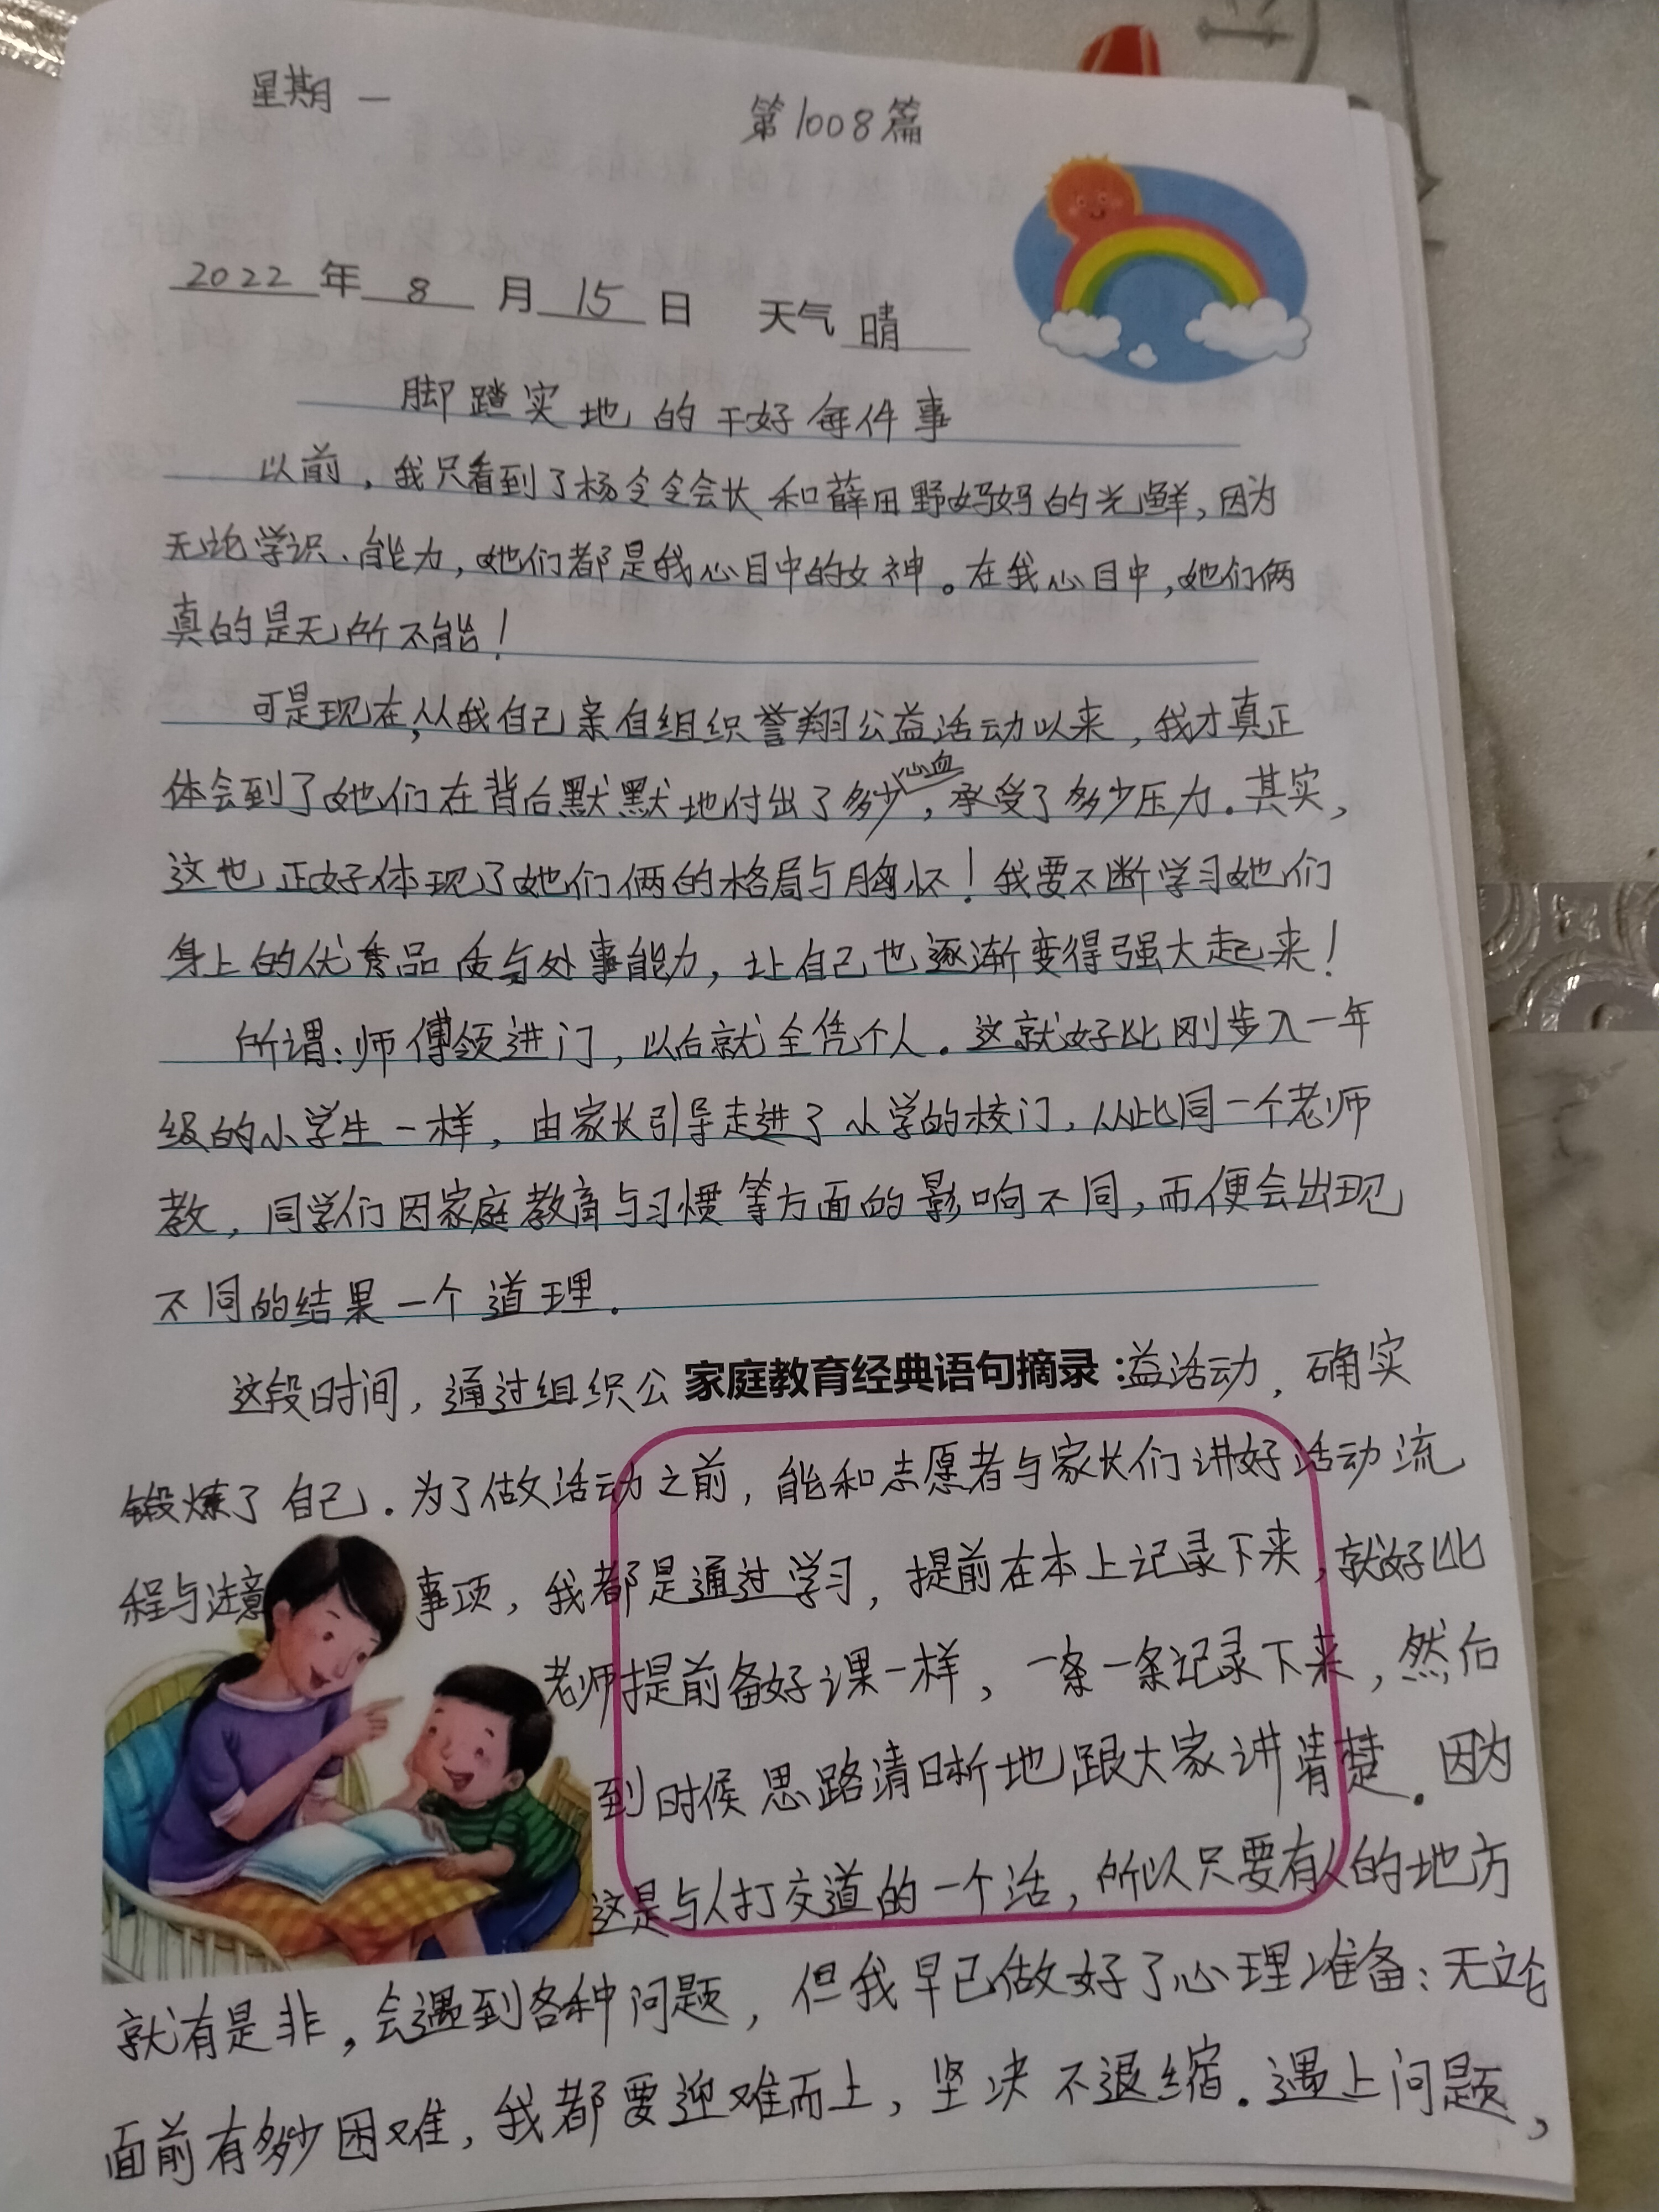 星期一
第1008篇
2022年8月15日 天气 晴
脚踏实地的干好每件事
以前，我只看到了杨令令会长和薛田野妈妈的光鲜，因为
无论学识、能力，她们都是我心目中的女神。在我心目中，她们俩
真的是无所不能！
可是现在，从我自己亲自组织誉翔公益活动以来，我才真正
体会到了她们在背后默默地付出了多少心血，承受了多少压力。其实，
这也正好体现了她们俩的格局与胸怀！我要不断学习她们
身上的优秀品质与处事能力，让自己也逐渐变得强大起来！
所谓：师傅领进门，以后就全凭个人。这就好比刚步入一年
级的小学生一样，由家长引导走进了小学的校门，从此同一个老师
教，同学们因家庭教育与习惯等方面的影响不同，而便会出现
不同的结果一个道理。
这段时间，通过组织公 家庭教育经典语句摘录：益活动，确实
锻炼了自己。为了做活动之前，能和志愿者与家长们讲好活动流
程与注意事项，我都是通过学习，提前在本上记录下来，就好比
老师提前备好课一样，一条一条记录下来，然后
到时候思路清晰地跟大家讲清楚。因为
这是与人打交道的一个活，所以只要有人的地方
就有是非，会遇到各种问题，但我早已做好了心理准备：无论
面前有多少困难，我都要迎难而上，坚决不退缩。遇上问题，